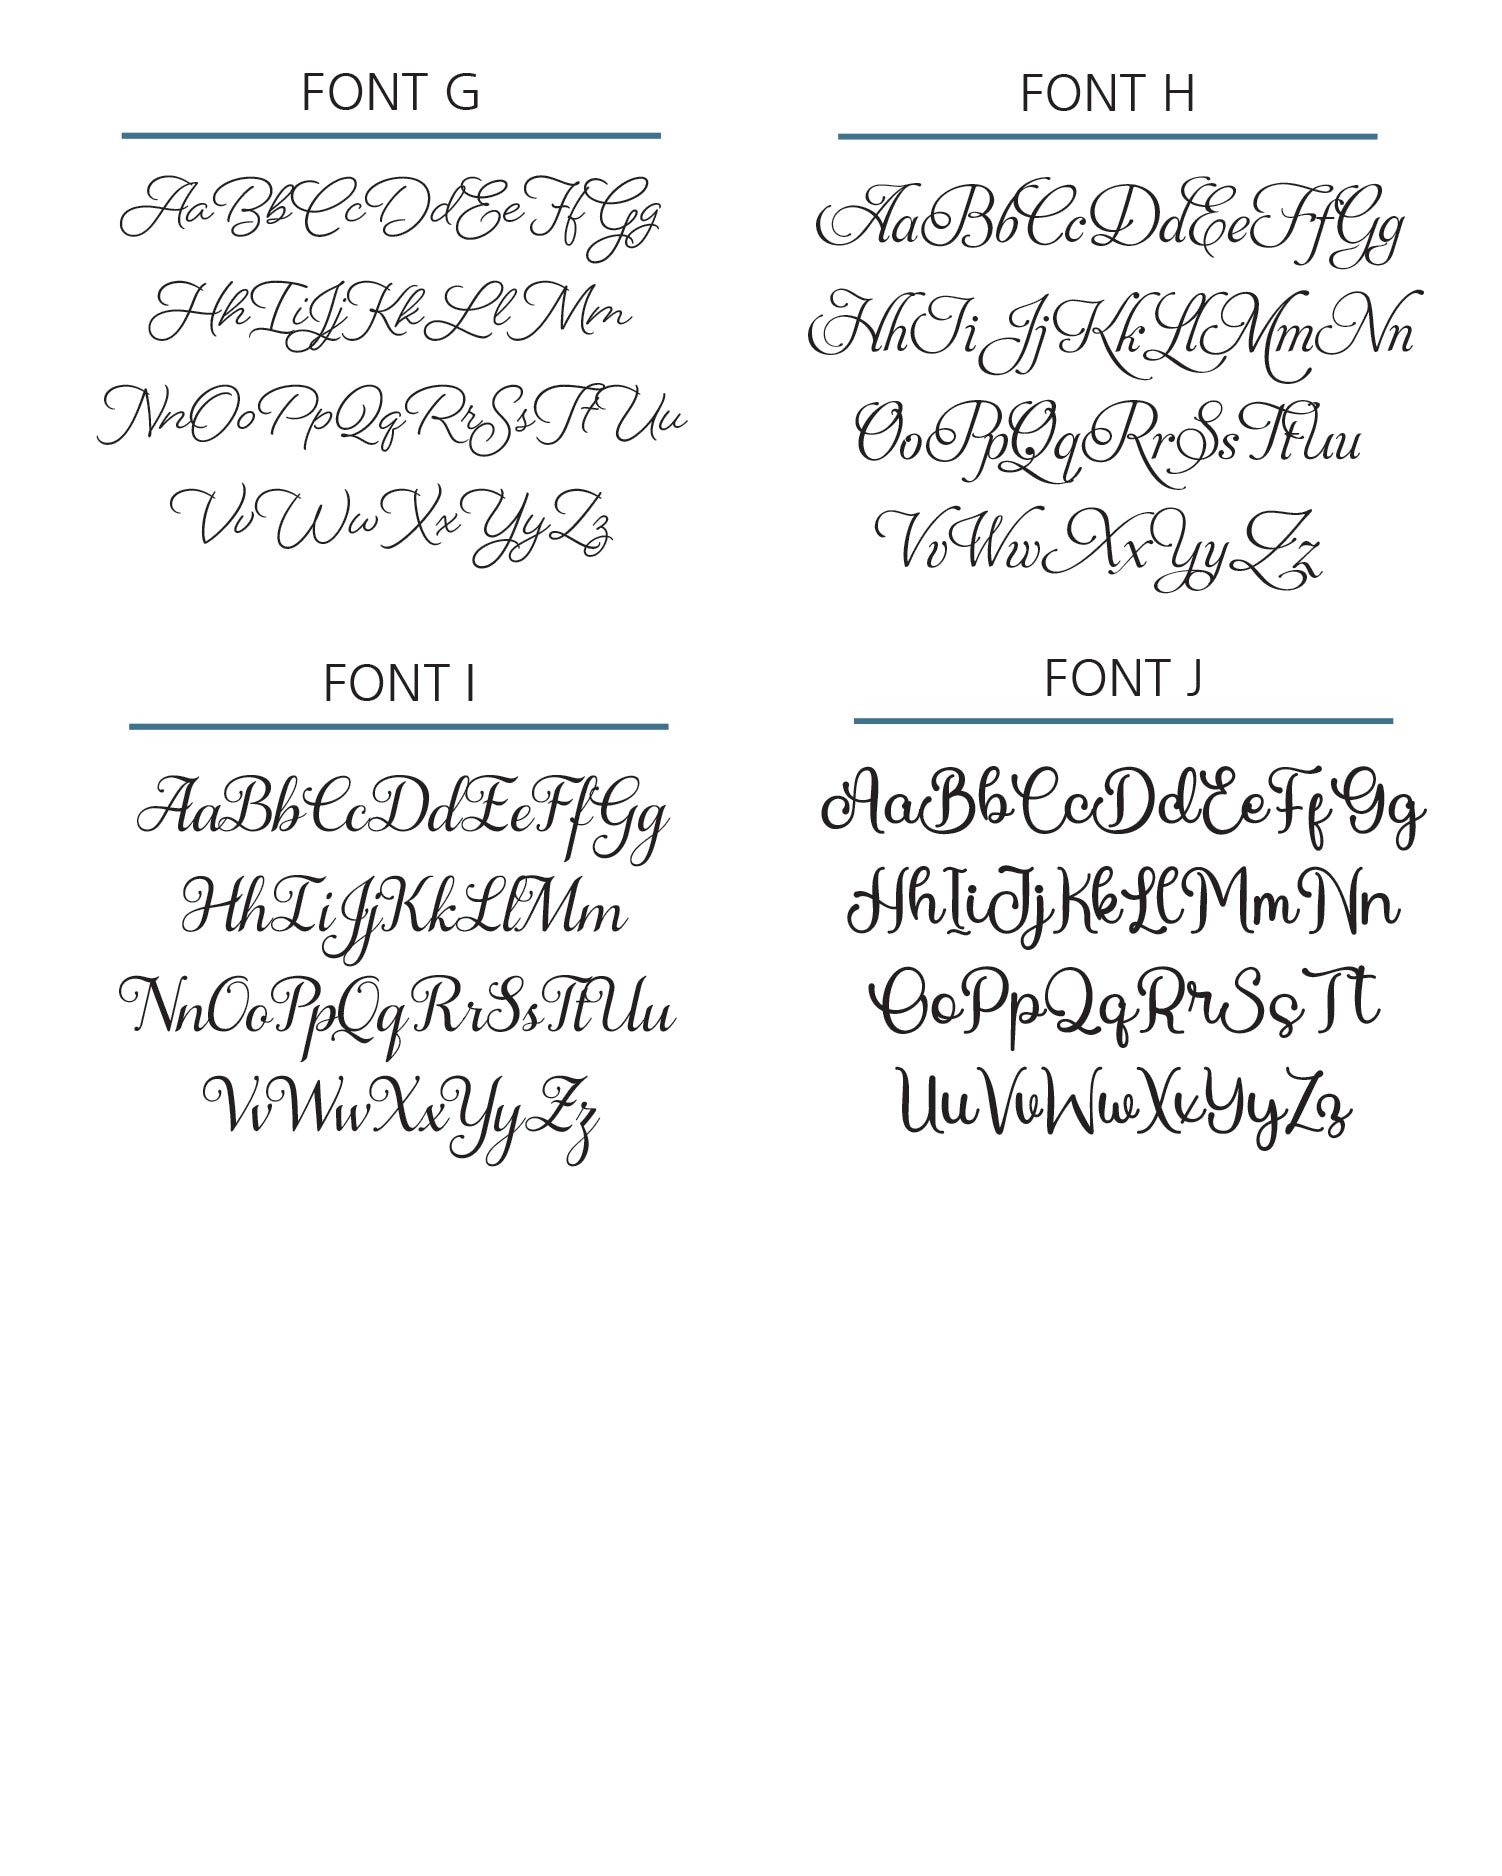 FONT G
AaBbCcDdEeFfGg
HhIiJjKkLlMm
NnOoPpQqRrSsTtUu
VvWwXxYyZz
FONT H
AaBbCcDdEeFfGg
HhIiJjKkLlMmNn
OoPpQqRrSsTtUu
VvWwXxYyZz
FONT I
AaBbCcDdEeFfGg
HhIiJjKkLlMm
NnOoPpQqRrSsTtUu
VvWwXxYyZz
FONT J
AaBbCcDdEeFfGg
HhIiJjKkLlMmNn
OoPpQqRrSsTt
UuVvWwXxYyZz